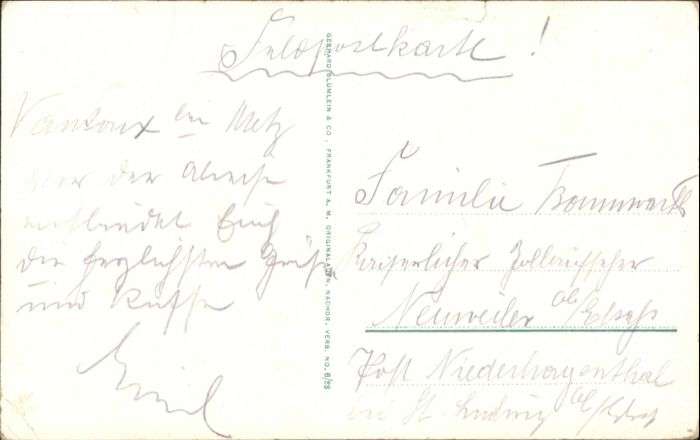 Feldpostkarte!
Vantoux bei Metz
vor der Abreise
entbietet Euch
die herzlichsten Grüße
und Küsse
Emil
GEBHARD BLÜMLEIN & CO., FRANKFURT A. M. ORIGINALAUFN. NACHDR. VERB. NO. 8/28
Familie
Kaiserlicher Zollaufseher
Neuweiler Ob/Elsaß
Post Niederhagenthal
bei St. Ludwig Ob/Elsaß